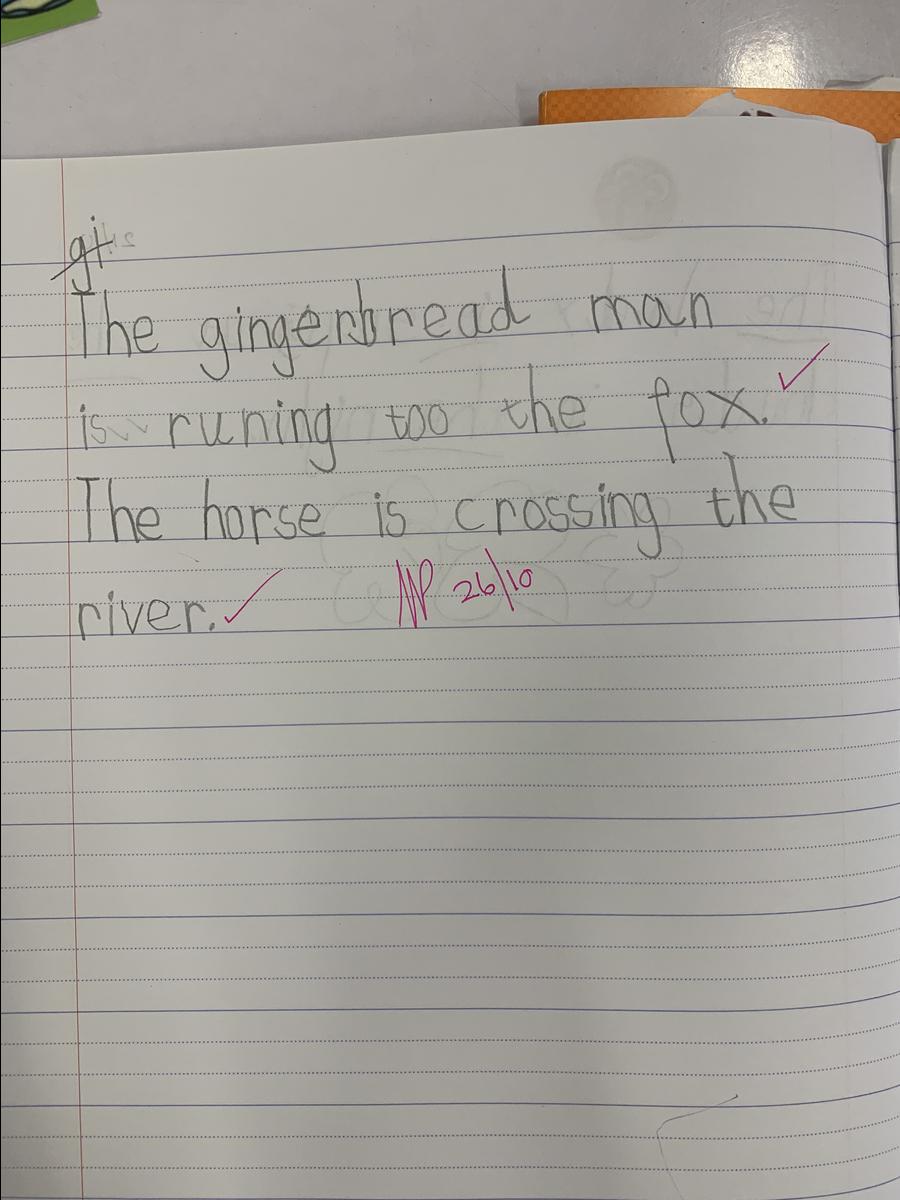 gi
The gingerbread man
is runing too the fox.
The horse is crossing the
river. NP 26/10